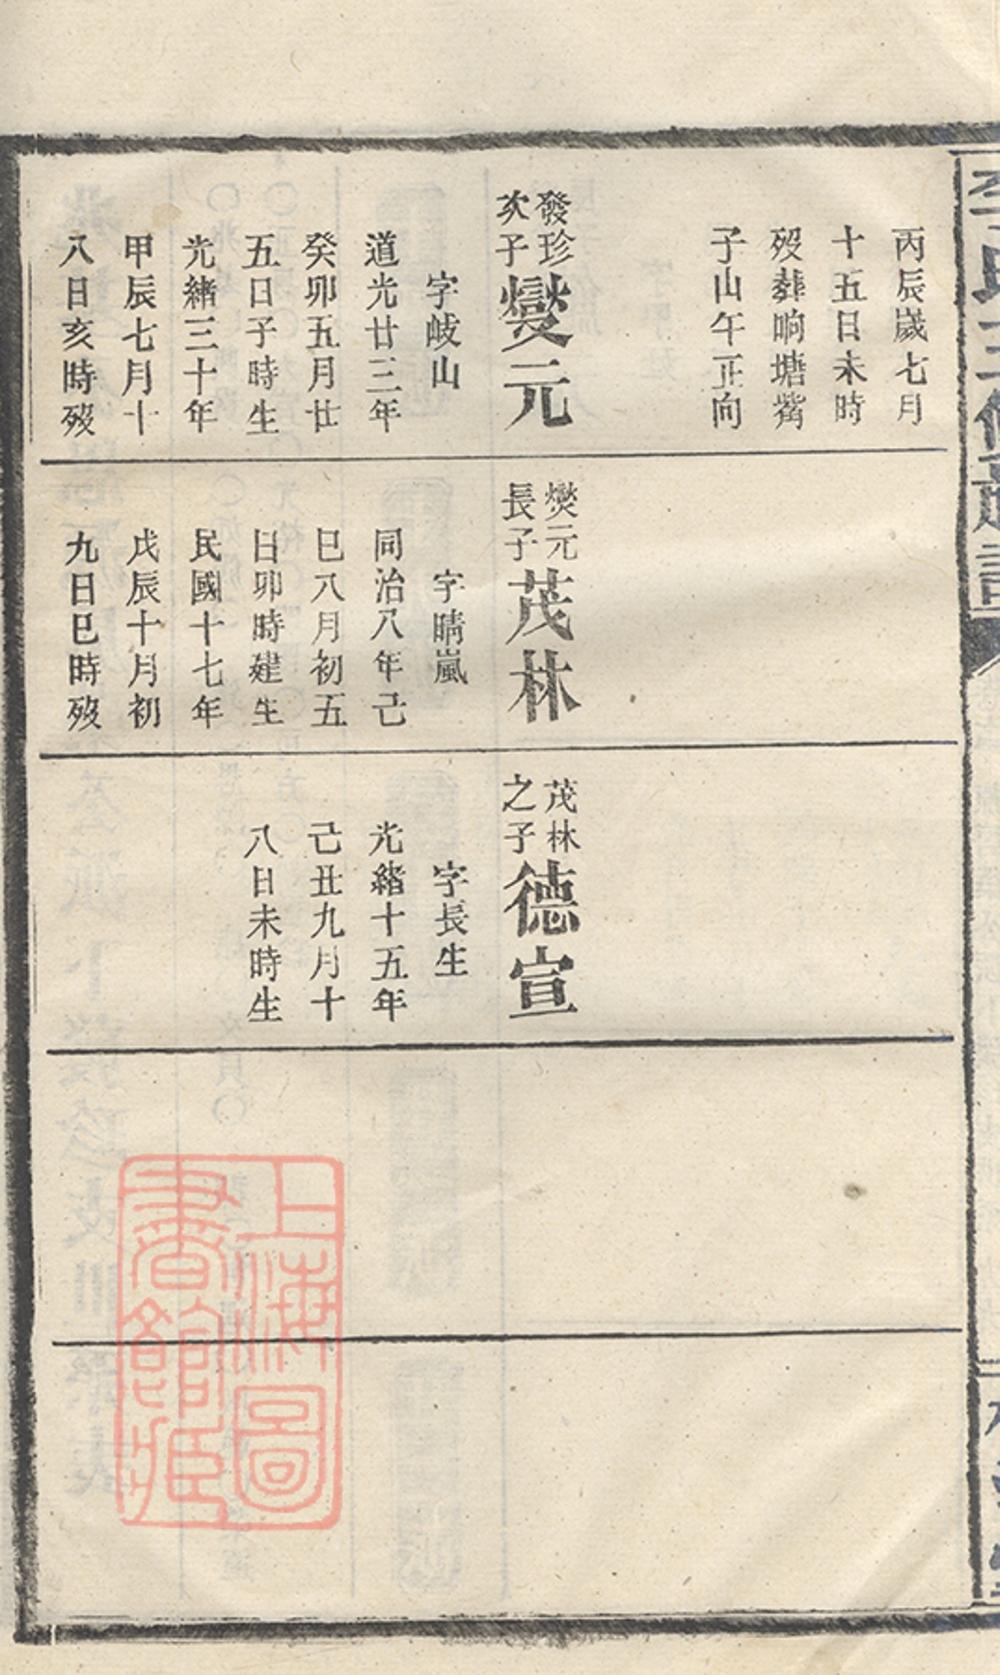 丙辰歲七月
十五日未時
歿葬响塘嘴
子山午正向
發珍
次子
燮元
字岐山
道光廿三年
癸卯五月廿
五日子時生
光緒三十年
甲辰七月十
八日亥時歿
燮元
長子
茂林
字晴嵐
同治八年己
巳八月初五
日卯時建生
民國十七年
戊辰十月初
九日巳時歿
茂林
之子
德宣
字長生
光緒十五年
己丑九月十
八日未時生
上海圖
書館藏